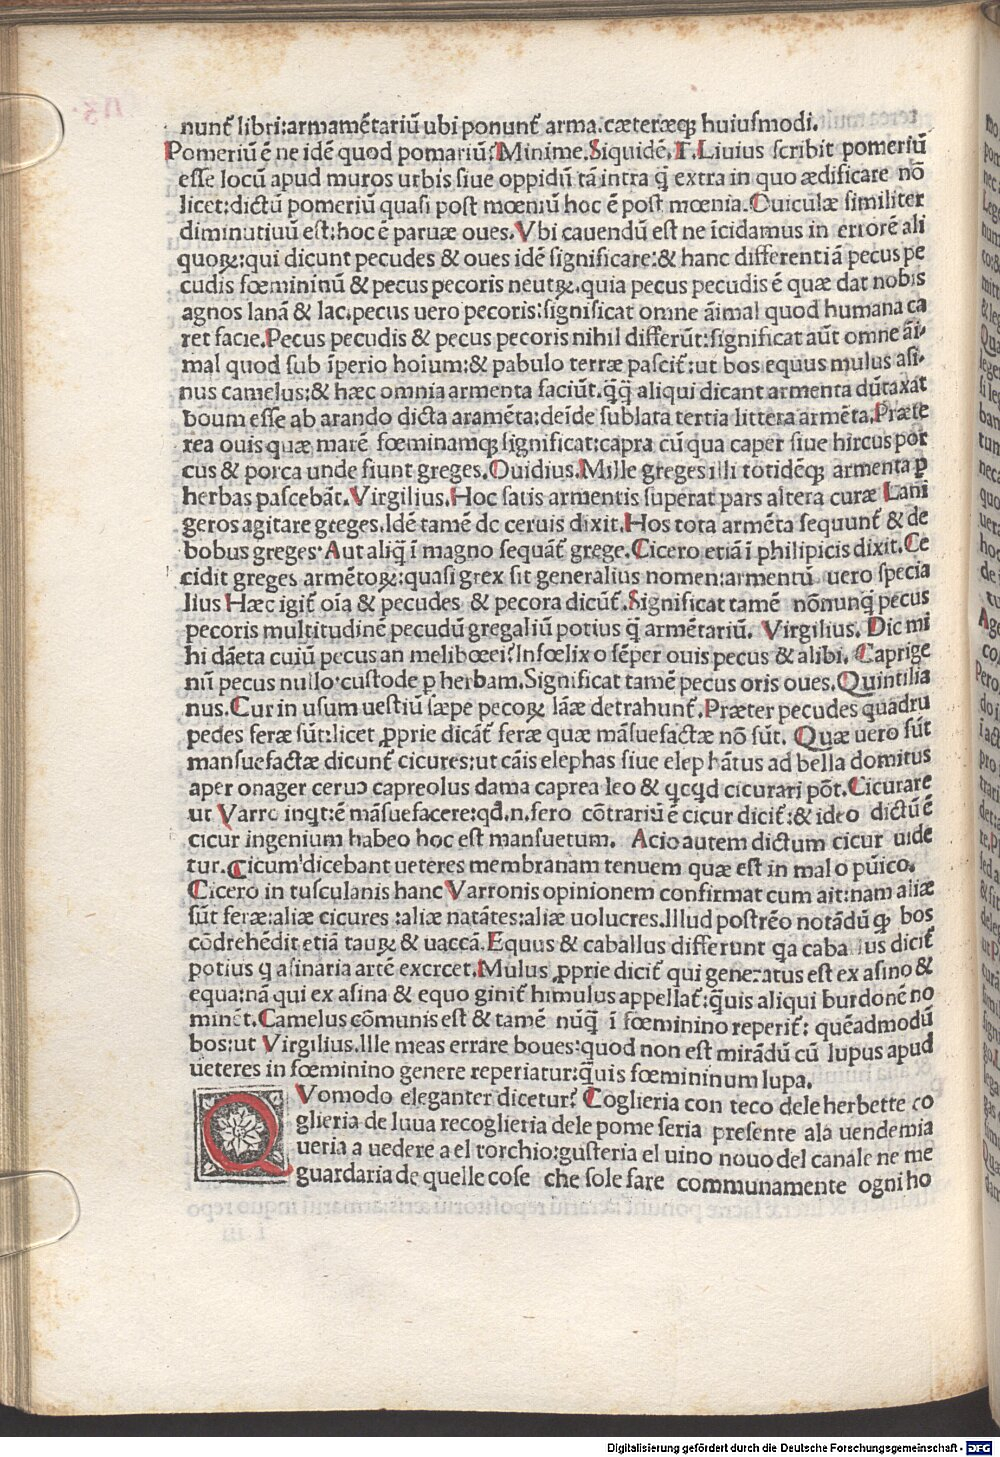 nunt᷑ libri:armamētariū ubi ponunt᷑ arma.cæteræqꝫ huiuſmodi.
Pomeriū ē ne idē quod pomariū? Minime.Siquidē.T.Liuius ſcribit pomeriū
eſſe locū apud muros urbis ſiue oppidū tā intra q̄ extra in quo ædificare nō
licet:dictū pomeriū quaſi poſt mœniū hoc ē poſt mœnia.Ouiculæ ſimiliter
diminutiuū eſt:hoc ē paruæ oues.Vbi cauendū eſt ne īcidamus in errorē ali
quoꝝ:qui dicunt pecudes & oues idē ſignificare:& hanc differentiā pecus pe
cudis fœmininū & pecus pecoris neutꝝ.quia pecus pecudis ē quæ dat nobis
agnos lanā & lac.pecus uero pecoris:ſignificat omne āimal quod humana ca
ret facie.Pecus pecudis & pecus pecoris nihil differūt:ſignificat aūt omne āi-
mal quod ſub īperio hoīum:& pabulo terræ paſcit᷑:ut bos equus mulus aſi-
nus camelus:& hæc omnia armenta faciūt.q̄q̄ aliqui dicant armenta dūtaxat
boum eſſe ab arando dicta aramēta:deīde ſublata tertia littera armēta.Præte
rea ouis quæ marē fœminamqꝫ ſignificat:capra cū qua caper ſiue hircus por
cus & porca unde fiunt greges.Ouidius.Mille greges illi totidēqꝫ armenta ꝑ
herbas paſcebāt.Virgilius.Hoc ſatis armentis ſuperat pars altera curæ Lani
geros agitare greges.Idē tamē de ceruis dixit.Hos tota armēta ſequunt᷑ & de
bobus greges.Aut aliq̄ ī magno ſequāt᷑ grege.Cicero etiā ī philipicis dixit.Ce
cidit greges armētoꝝ:quaſi grex ſit generalius nomen:armentū uero ſpecia
lius Hæc igit᷑ oīa & pecudes & pecora dicūt᷑.Significat tamē nōnunq̄ pecus
pecoris multitudinē pecudū gregaliū potius q̄ armētariū. Virgilius. Dic mi
hi dāeta cuiū pecus an melibœei? Infœlix o ſēper ouis pecus & alibi. Caprige
nū pecus nullo cuſtode ꝑ herbam.Significat tamē pecus oris oues.Quintilia
nus.Cur in uſum ueſtiū ſæpe pecoꝝ lāæ detrahunt᷑.Præter pecudes quadru
pedes feræ ſūt:licet ꝓprie dicāt᷑ feræ quæ māſuefactæ nō ſūt. Quæ uero ſūt
manſuefactæ dicunt᷑ cicures:ut cāis elephas ſiue elephātus ad bella domitus
aper onager ceruꝰ capreolus dama caprea leo & qcqd cicurari pōt.Cicurare
ut Varro inqt:ē māſuefacere:qđ.n.fero cōtrariū ē cicur dicit᷑:& ideo dictū ē
cicur ingenium habeo hoc eſt manſuetum. Acio autem dictum cicur uide
tur.Cicum dicebant ueteres membranam tenuem quæ eſt in malo pūico.
Cicero in tuſculanis hanc Varronis opinionem confirmat cum ait:nam aliæ
ſūt feræ:aliæ cicures :aliæ natātes:aliæ uolucres.Illud poſtrēo notādū qꝫ bos
cōdrehēdit etiā tauꝝ & uaccā.Equus & caballus differunt qa caba lus dicit᷑
potius q aſinaria artē excrcet.Mulus ꝓprie dicit᷑ qui generatus eſt ex aſino &
equa:nā qui ex aſina & equo ginit᷑ himulus appellat᷑:q̄uis aliqui burdonē no
minēt.Camelus cōmunis eſt & tamē nūq̄ ī fœminino reperit᷑: quēadmodū
bos:ut Virgilius.Ille meas errare boues:quod non eſt mirādū cū lupus apud
ueteres in fœminino genere reperiatur:q̄uis fœmininum lupa.
QVomodo eleganter dicetur? Coglieria con teco dele herbette co
glieria de luua recoglieria dele pome ſeria preſente ala uendemia
ueria a uedere a el torchio:guſteria el uino nouo del canale ne me
guardaria de quelle coſe che ſole fare communamente ogni ho
Digitalisierung gefördert durch die Deutsche Forschungsgemeinschaft - DFG